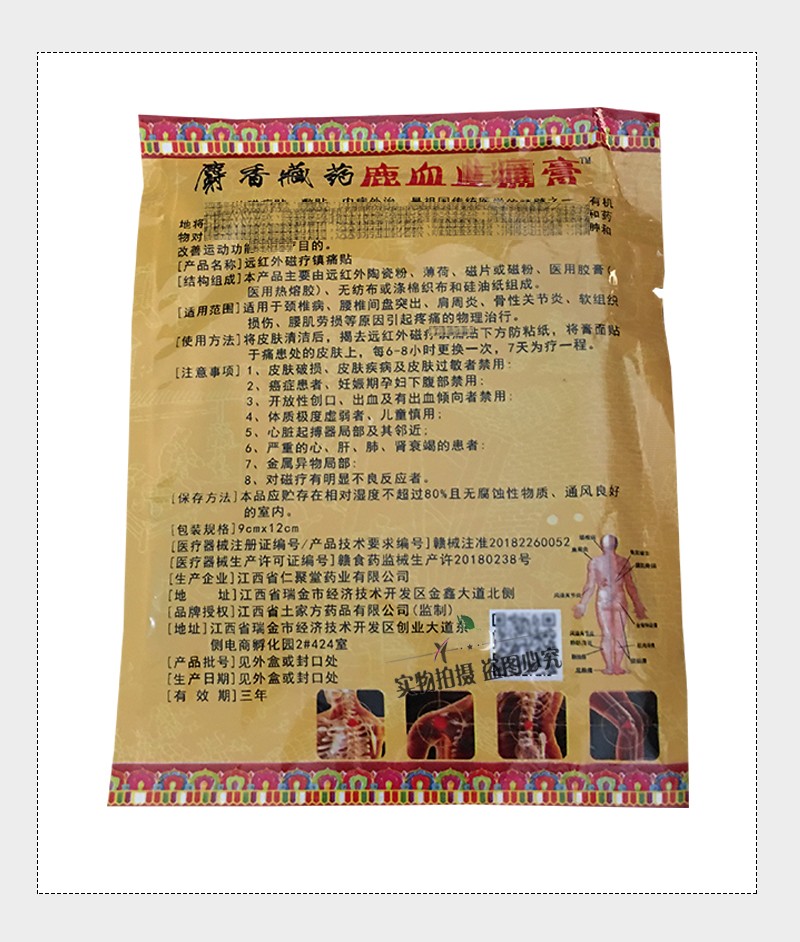 麝香藏药鹿血止痛膏™
有机
地将
和药
物对
肿和
改善运动功能
目的。
[产品名称]远红外磁疗镇痛贴
[结构组成]本产品主要由远红外陶瓷粉、薄荷、磁片或磁粉、医用胶膏(
医用热熔胶)、无纺布或涤棉织布和硅油纸组成。
[适用范围]适用于颈椎病、腰椎间盘突出、肩周炎、骨性关节炎、软组织
损伤、腰肌劳损等原因引起疼痛的物理治行。
[使用方法]将皮肤清洁后，揭去远红外磁疗镇痛贴下方防粘纸，将膏面贴
于痛患处的皮肤上，每6-8小时更换一次，7天为疗一程。
[注意事项]1、皮肤破损、皮肤疾病及皮肤过敏者禁用：
2、癌症患者、妊娠期孕妇下腹部禁用：
3、开放性创口、出血及有出血倾向者禁用：
4、体质极度虚弱者、儿童慎用；
5、心脏起搏器局部及其邻近；
6、严重的心、肝、肺、肾衰竭的患者：
7、金属异物局部：
8、对磁疗有明显不良反应者。
[保存方法]本品应贮存在相对湿度不超过80%且无腐蚀性物质、通风良好
的室内。
[包装规格]9cmx12cm
[医疗器械注册证编号/产品技术要求编号]赣械注准20182260052
[医疗器械生产许可证编号]赣食药监械生产许20180238号
[生产企业]江西省仁聚堂药业有限公司
[地 址]江西省瑞金市经济技术开发区金鑫大道北侧
[品牌授权]江西省土家方药品有限公司(监制)
[地址]江西省瑞金市经济技术开发区创业大道东
侧电商孵化园2#424室
[产品批号]见外盒或封口处
[生产日期]见外盒或封口处
[有 效 期]三年
实物拍摄 盗图必究